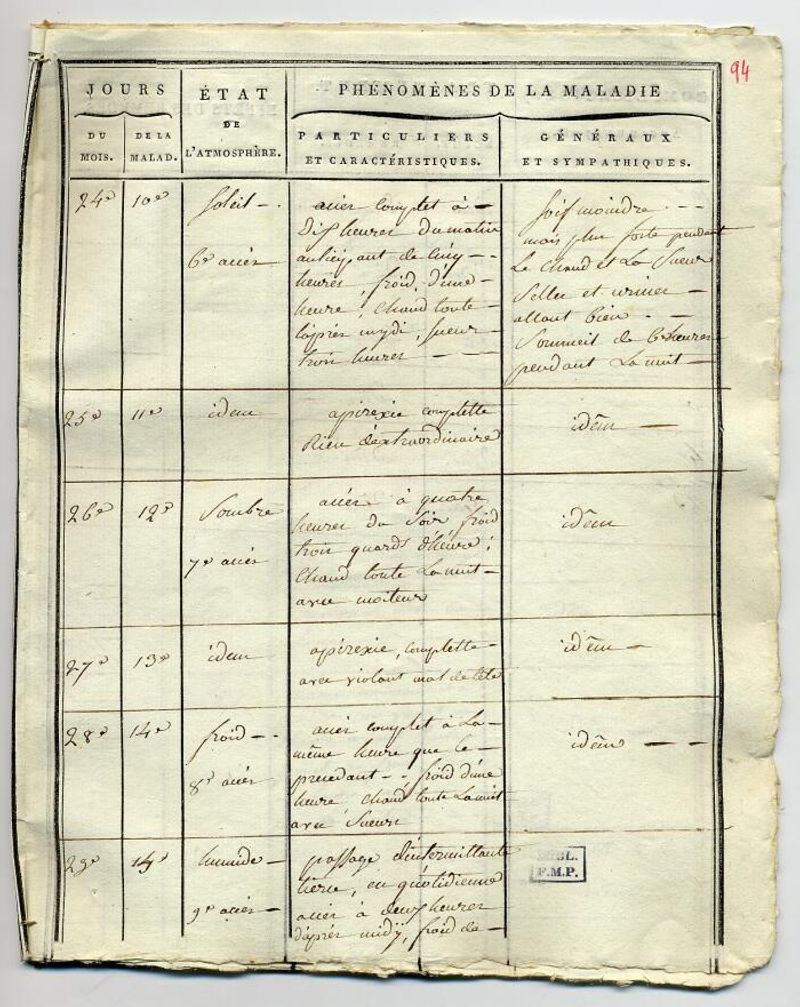 94
JOURS
DU MOIS.
DE LA MALAD.
ÉTAT
DE
L'ATMOSPHÈRE.
PHÉNOMÈNES DE LA MALADIE
PARTICULIERS
ET CARACTÉRISTIQUES.
GÉNÉRAUX
ET SYMPATHIQUES.
24e
10e
Soleil -.
6e accès
accès complet à -
Dix heures du matin
anticipant de cinq - -
heures, froid, d'une -
heure, chaud toute -
l'après mydi, sueur -
trois heures - - -
soif moindre . - -
mais plus forte pendant
Le chaud et La Sueur
Selles et urines -
allant bien . -
Sommeil de 6 heures
pendant La nuit -
25e
11e
idem
apirexie complette
Rien d'extraordinaire
idêm -
26e
12e
Sombre
7e accès
accès à quatre
heures du Soir, froid
trois quards d'heure ;
Chaud toute La nuit -
avec moiteur
idêm
27e
13e
idem
apirexie, complette -
avec violant mal de tête
idêm -
28e
14e
froid - -
8e accès
accès complet à La -
même heure que le -
precedant - - froid d'une
heure Chaud toute La nuit
avec Sueurs
idêm - -
29e
15e
humide -
9e accès -
passage d'intermittante
tierce, en quotidienne
accès à deux heures
d'après midÿ, froid de -
BIBL.
F.M.P.